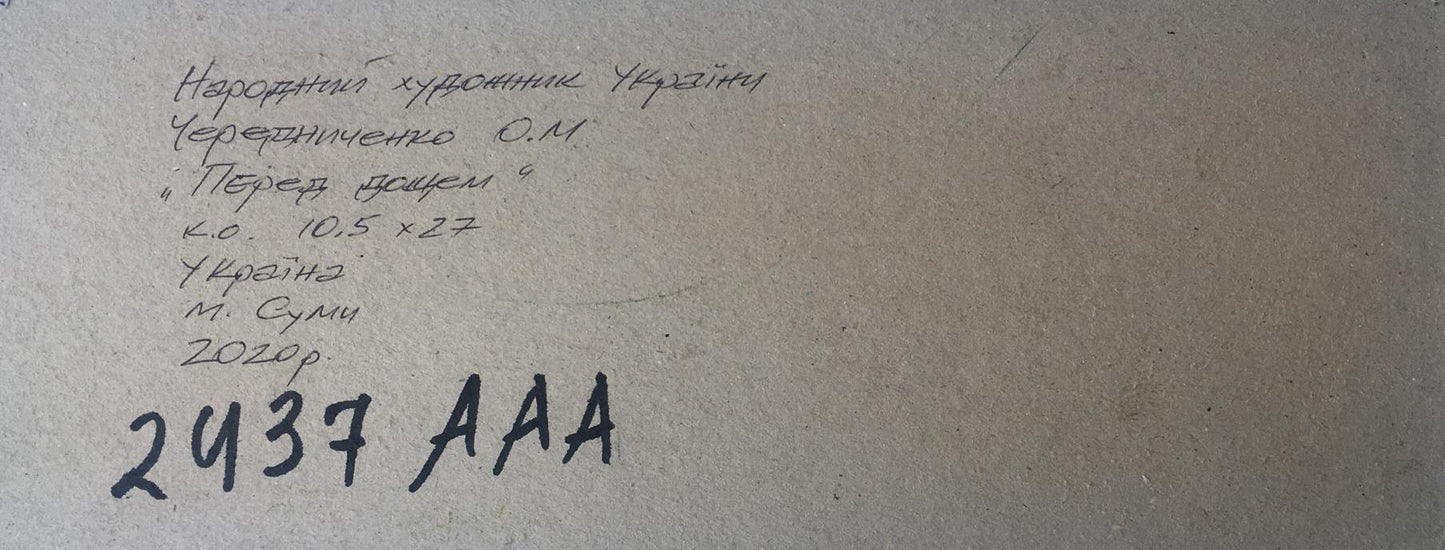 Народний художник України
Чередниченко О.М
„Перед дощем“
к.о. 10.5 х 27
Україна
м. Суми
2020р.
2437 ААА